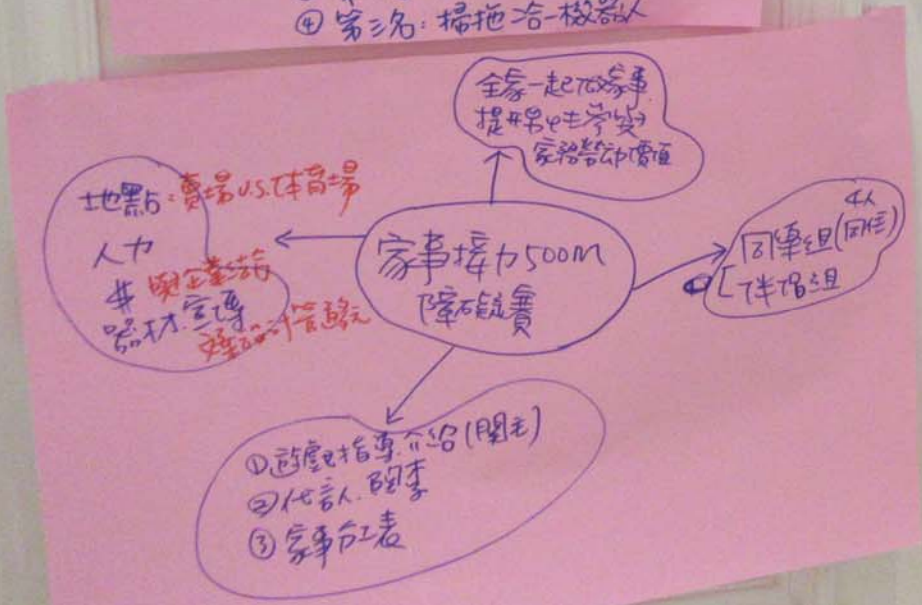 ④ 第三名：掃拖合一機器人
全家一起做家事
提升男性參與
家務勞动價值
地點：賣場 v.s. 体育場
人力
與企業結合
器材.宣傳
家事接力500m
障礙賽
4人
同事組(同住)
伴侶組
①遊戲指導.介紹(關主)
②代言人.阿李
③家事分工表